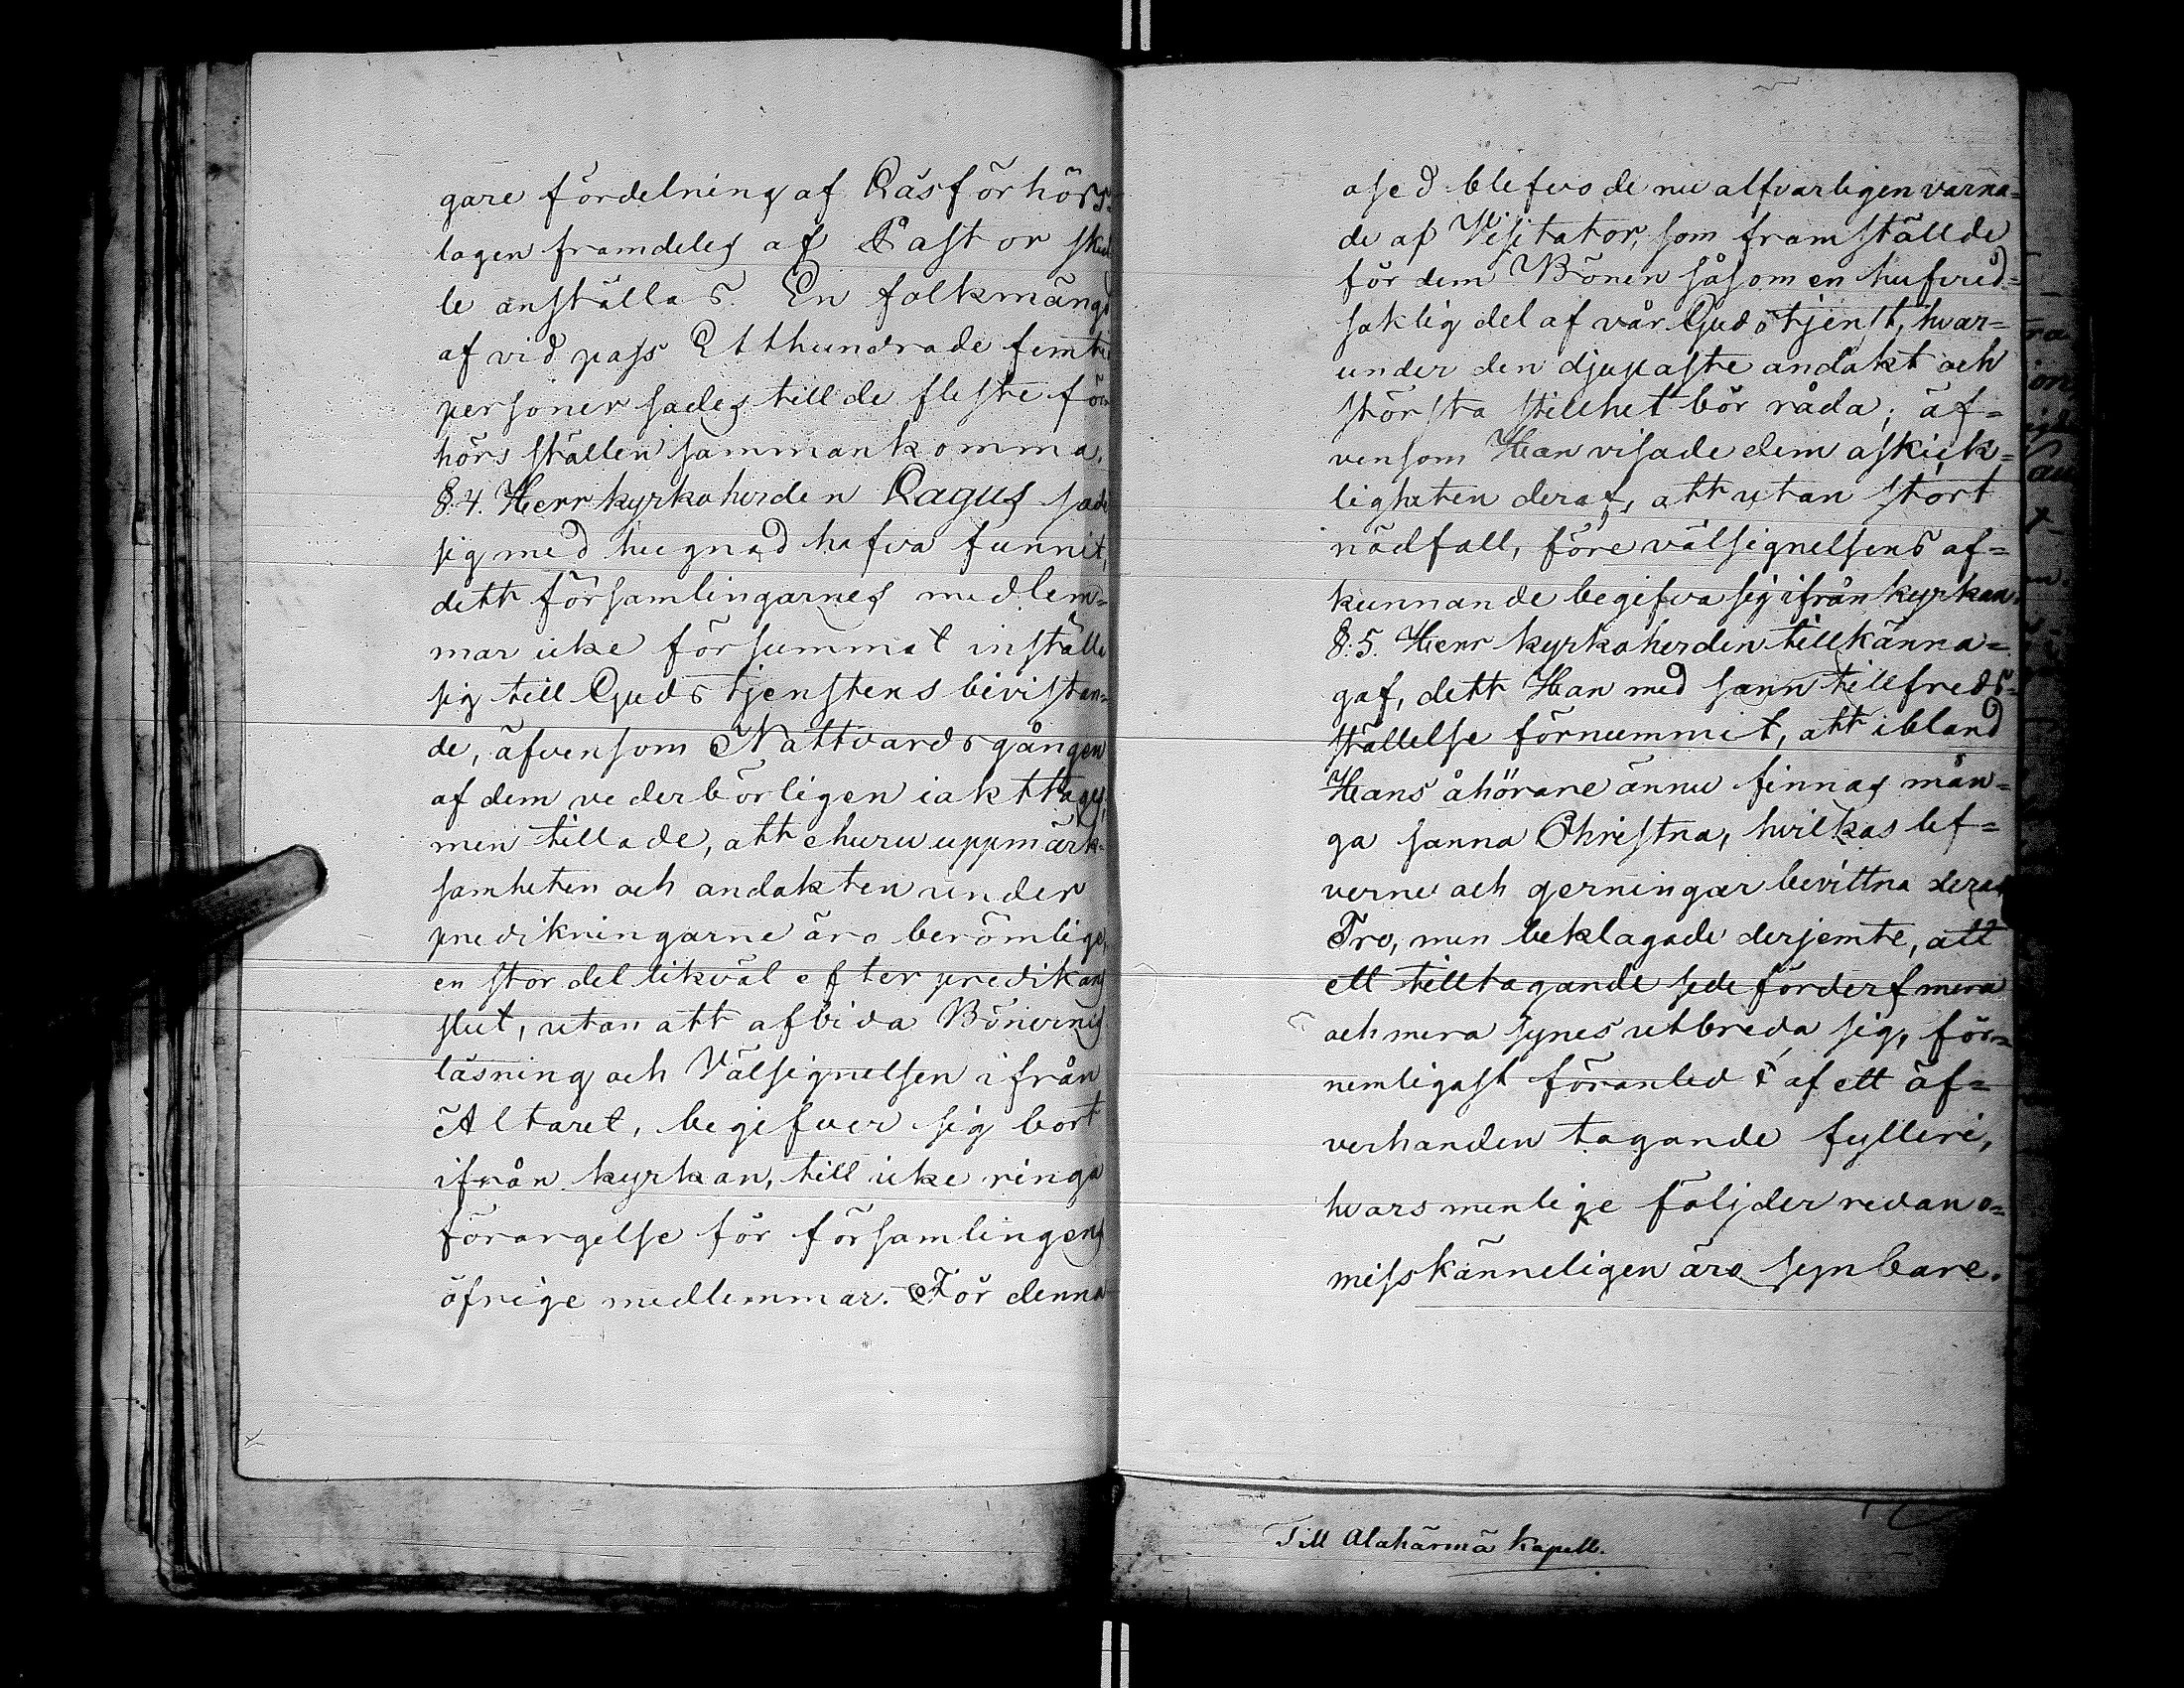 gare fördelning af Läsförhörs-
lagen framdeles af Pastor skul
le anställas. En folkmängd
af vid pass Etthundrade femtio
personer sades till de fleste för
hörs ställen sammankomma.
§.4. Herr kyrkoherden Lagus sade
sig med hugnad hafva funnit,
dett församlingarnes medlem=
mar icke försummat inställa
sig till Gudstjenstens bivistan=
de, äfvensom Nattvardsgången
af dem vederbörligen iakttages;
men tillade, att ehuru uppmärk-
samheten och andakten under
predikningarne äro berömlige,
en stor del likväl efter predikans
slut, utan att afbida Bönernes
läsning och Välsignelsen ifrån
Altaret, begifver sig bort
ifrån kyrkan, till icke ringa
förargelse för församlingens
öfrige medlemmar. För denna
osed blefvo de nu alfvarligen varna=
de af Visitator, som framställde
för dem Bönen såsom en hufvud=
saklig del af vår Gudstjenst, hvar=
under den djupaste andakt och
största stillhet bör råda; äf=
vensom Han visade dem oskick=
ligheten deraf, att utan stort
nödfall, före välsignelsens af=
kunnande begifva sig ifrån kyrkan.
§.5. Herr kyrkoherden tillkänna=
gaf, dett Han med sann tillfreds=
ställelse förnummit, att ibland
Hans åhörare ännu finnas mån=
ga sanna Christna, hvilkas lef=
verne och gerningar bevittna deras
Tro, men beklagade derjemte, att
ett tilltagande sedeförderf mera
och mera synes utbreda sig, för=
nemligast föranledt af ett öf=
verhanden tagande fylleri,
hvars menlige följder redan o=
misskänneligen äro synbare.
Till Alahärmä Kapell.